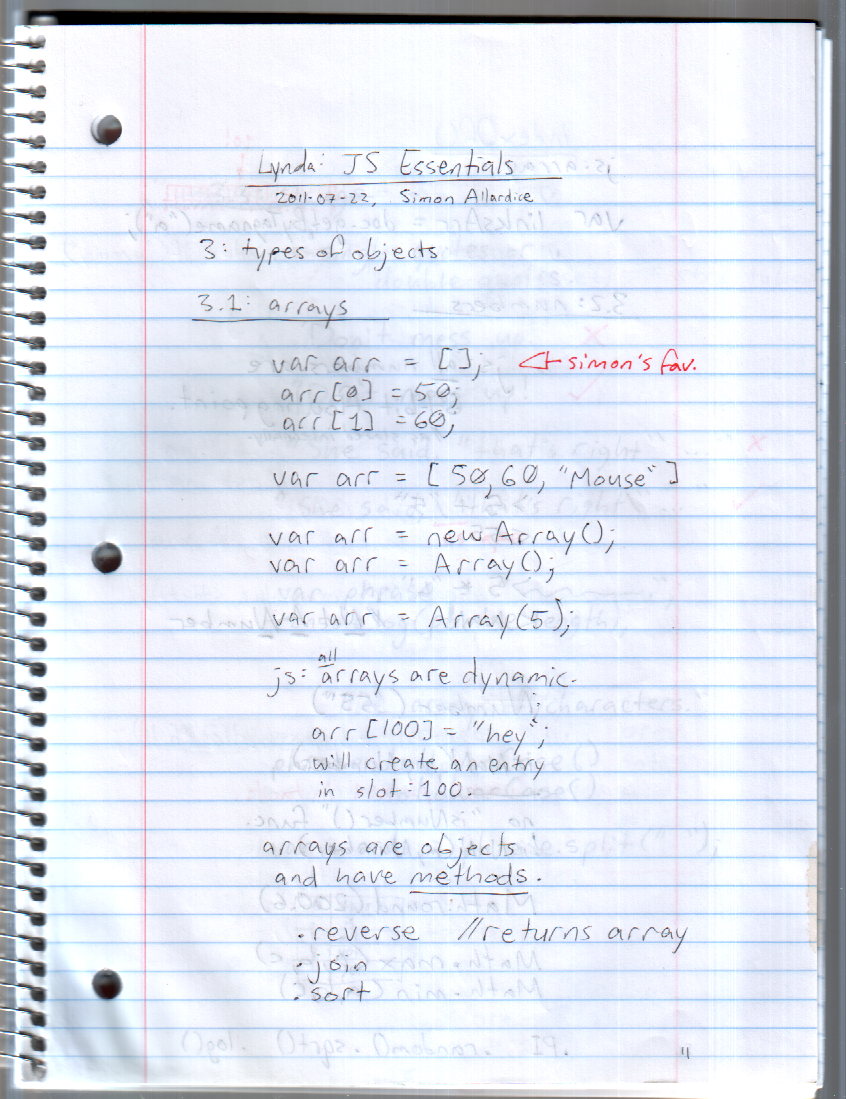 Lynda: JS Essentials
2011-07-22, Simon Allardice
3: types of objects
3.1: arrays
var arr = []; ← simon's fav.
arr[0] = 50;
arr[1] = 60;
var arr = [50,60, "Mouse"]
var arr = new Array();
var arr = Array();
var arr = Array(5);
all
js: arrays are dynamic.
arr[100] = "hey";
will create an entry
in slot: 100.
arrays are objects
and have methods.
.reverse //returns array
.join
.sort